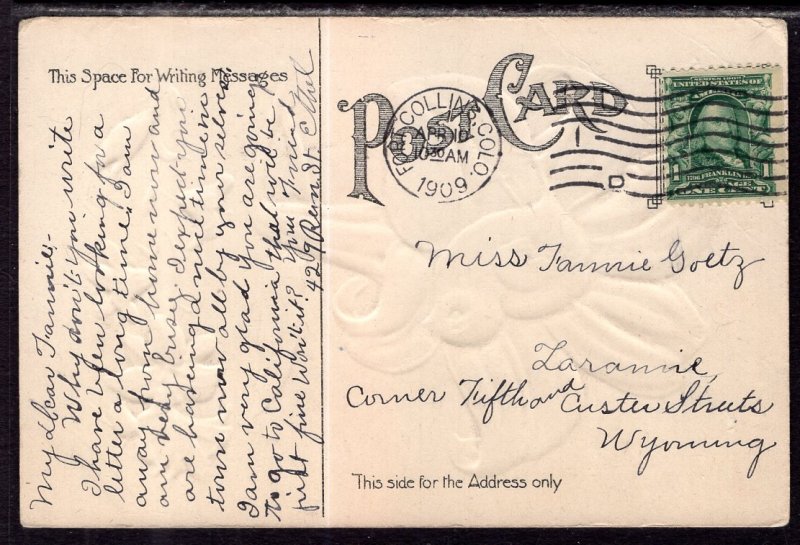 This Space For Writing Messages
My dear Fannie:-
Why don't you write
I have been looking for a
letter a long time. I am
away from home now and
am very busy. I expect you
are having a nice time in
town now all by your selves
I am very glad you are going
to go to California that will be
just fine won't it? Your Friend
429 St. Ethel
POST CARD
FORT COLLINS, COLO.
APR 10
10 30 AM
1909
1
D
SERIES 1902
UNITED STATES OF
1
1
1706 FRANKLIN
ONE CENT
Miss Fannie Goetz
Laramie,
Corner Fifth and Custer Streets
Wyoming
This side for the Address only